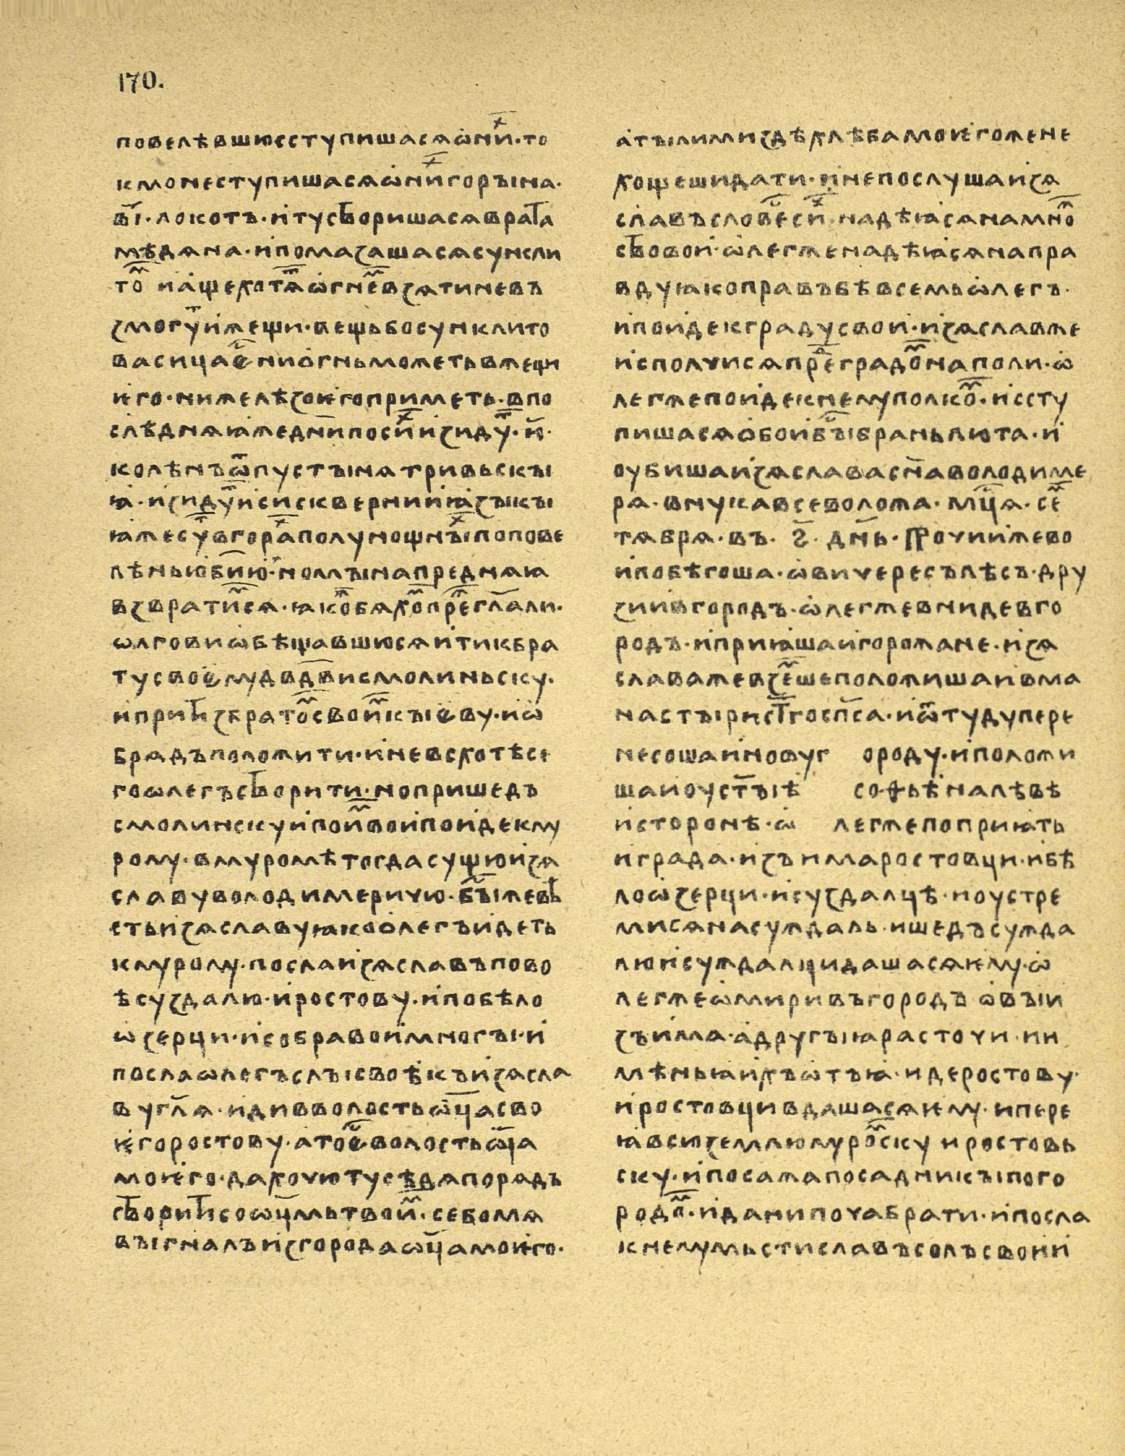 170.
повелѣвшюсступишасяѡни́ⷯ·то
кмонеступишасяѡни́ⷯгорꙑна·
ві҃·локотъ·итусⷡ҇оришасяврат҇а
мѣдяна·ипомазашасясункли
тоⷨ҇ иащехотⷮяѡгнеⷨ҇взятиневъ
змогуⷮижещи·вещьбосунклито
васицаеⷭ҇·ниогньможетьвжещи
ꙗго·нижелѣзоѥгоприметь·впо
слѣдняꙗжеднипосиⷯ҇изидуⷮ·и҃·
колѣнъѿпустꙑнятривьскꙑ
ꙗ·изидуⷮисисквернииꙗзꙑкꙑ
ꙗжесуⷮвгораⷯполунощнꙑⷯпопове
лѣньюбию҃·номꙑнапредняꙗ
взвратиⷨся·ꙗкоⷤбяхоⷨпреⷤглали·
ѡлговиѡбѣщавшюсяитикбра
тусвоѥмудвдв҃исмолиньску·
иприиⷭ҇збратоⷨсвоиⷨкꙑѥву·иѡ
брядъположити·иневсхотѣсе
гоѡлегъсⷡ҇орити·нопришедъ
смолинскуипоиⷨвоипоидекму
рому·вмуромѣтогдасущюизя
славуволодимеричю·бꙑⷭ҇жевⷭ҇ѣ
стьизяславуꙗкоолегъидеть
кмурому·послаизяславъпово
ѣсуздалю·иростову·ипобѣло
ѡзерци·исобравоимногꙑ·и
послаѡлегъслꙑсвоѣкъизясла
вугл҃я·идивволостьѡц҃асво
ѥгоростову·атоеⷭ҇волостьѡц҃а
моѥго·дахочютусѣдяпорядъ
сⷡ҇ориⷮисоѡц҃мьтвоиⷨ·себомя
вꙑгналъизгородаѡц҃амоѥго·
атꙑлимиздѣхлѣбамоѥгожене
хощешидати·инепослушаизя
славъсловесⷭ҇иⷯ·надѣꙗсянамноⷤ
сⷡ҇овои·ѡлегженадѣꙗсянапра
вдуꙗкоправъбѣвсемьѡлегъ·
ипоидекградусвои·изяславже
исполчисяпреⷣградоⷨнаполи·ѡ
легжепоидекнемуполкоⷨ·иссту
пишасяѡбоибꙑⷭ҇браньлюта·и
оубишаизяславасн҃аволодиме
ря·внукавсеволожа·мцⷭ҇я·сеⷫ҇
тября·въ·ѕ҃·дн҃ь·Прочиижево
ипобѣгоша·ѡвичересълѣсъ·дру
зиивгородъ·ѡлегжевнидевго
родъ·иприꙗшаигорожане·изя
славажевзеⷨшеположишаивма
настꙑристⷭ҇госпс҃а·иѿтудупере
несошаиновуг ороду·иположи
шаиоуст҃ꙑѣ софьѣналѣвѣ
исторонѣ·ѡ легжепоприꙗть
играда·изъимаростовци·ибѣ
лоѡзерци·исуздалцѣ·ноустре
мисянасуждаль·ишедъсужда
люисуждалцидашасяиму·ѡ
легжеѡмиривъгородъ ѡвꙑи
зъима·адругꙑꙗрасточи·ии
мѣньꙗихъѡтъꙗ·идеростову·
иростовцивдашасяиму·ипере
ꙗвсюземлюмуроⷨску иростовь
ску·ипосажапосадникꙑпого
родⷨ·иданипочабрати·ипосла
книмумьстиславъсолъсвои